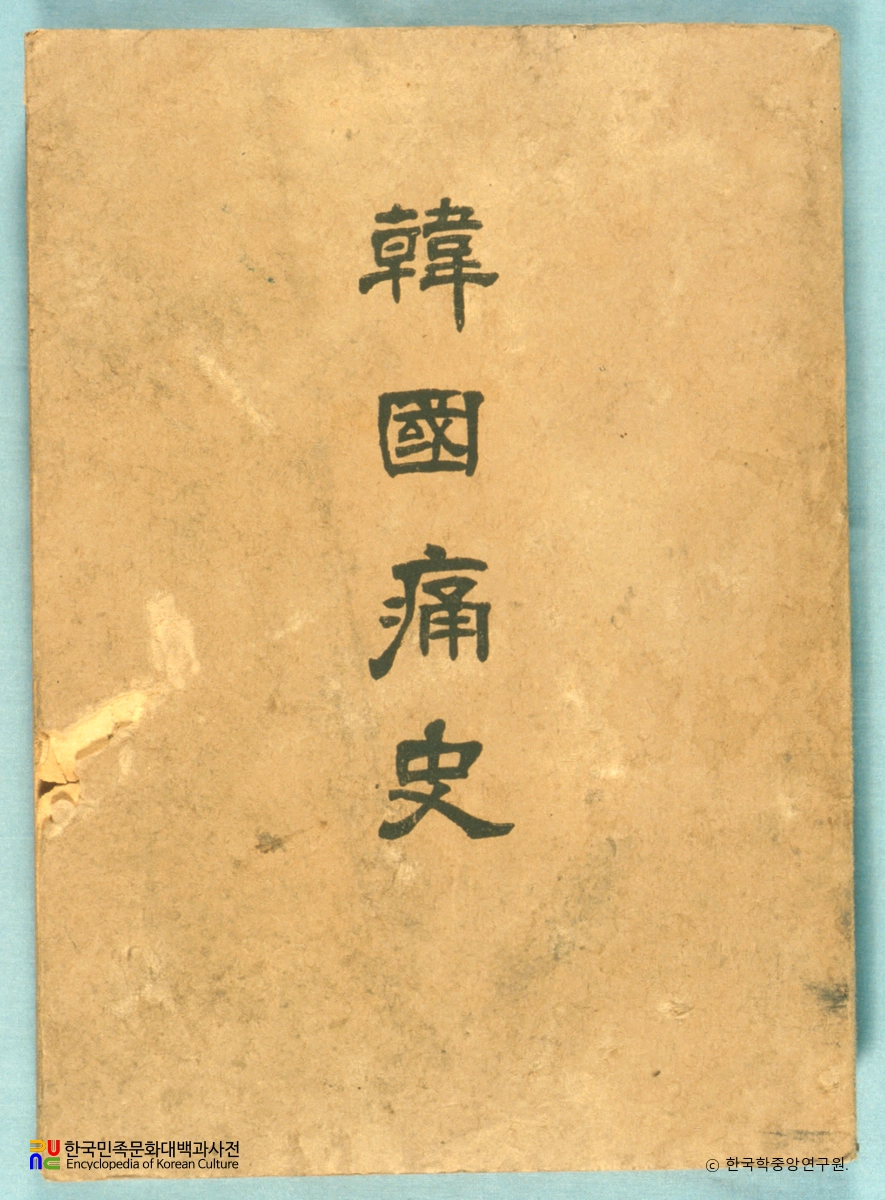 韓國痛史
한국민족문화대백과사전
Encyclopedia of Korean Culture
© 한국학중앙연구원.